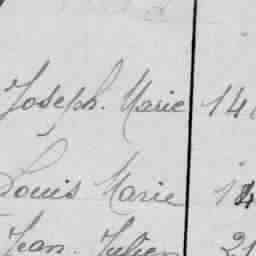 Joseph. Marie 14
Louis Marie 14
Jean. Julien 21